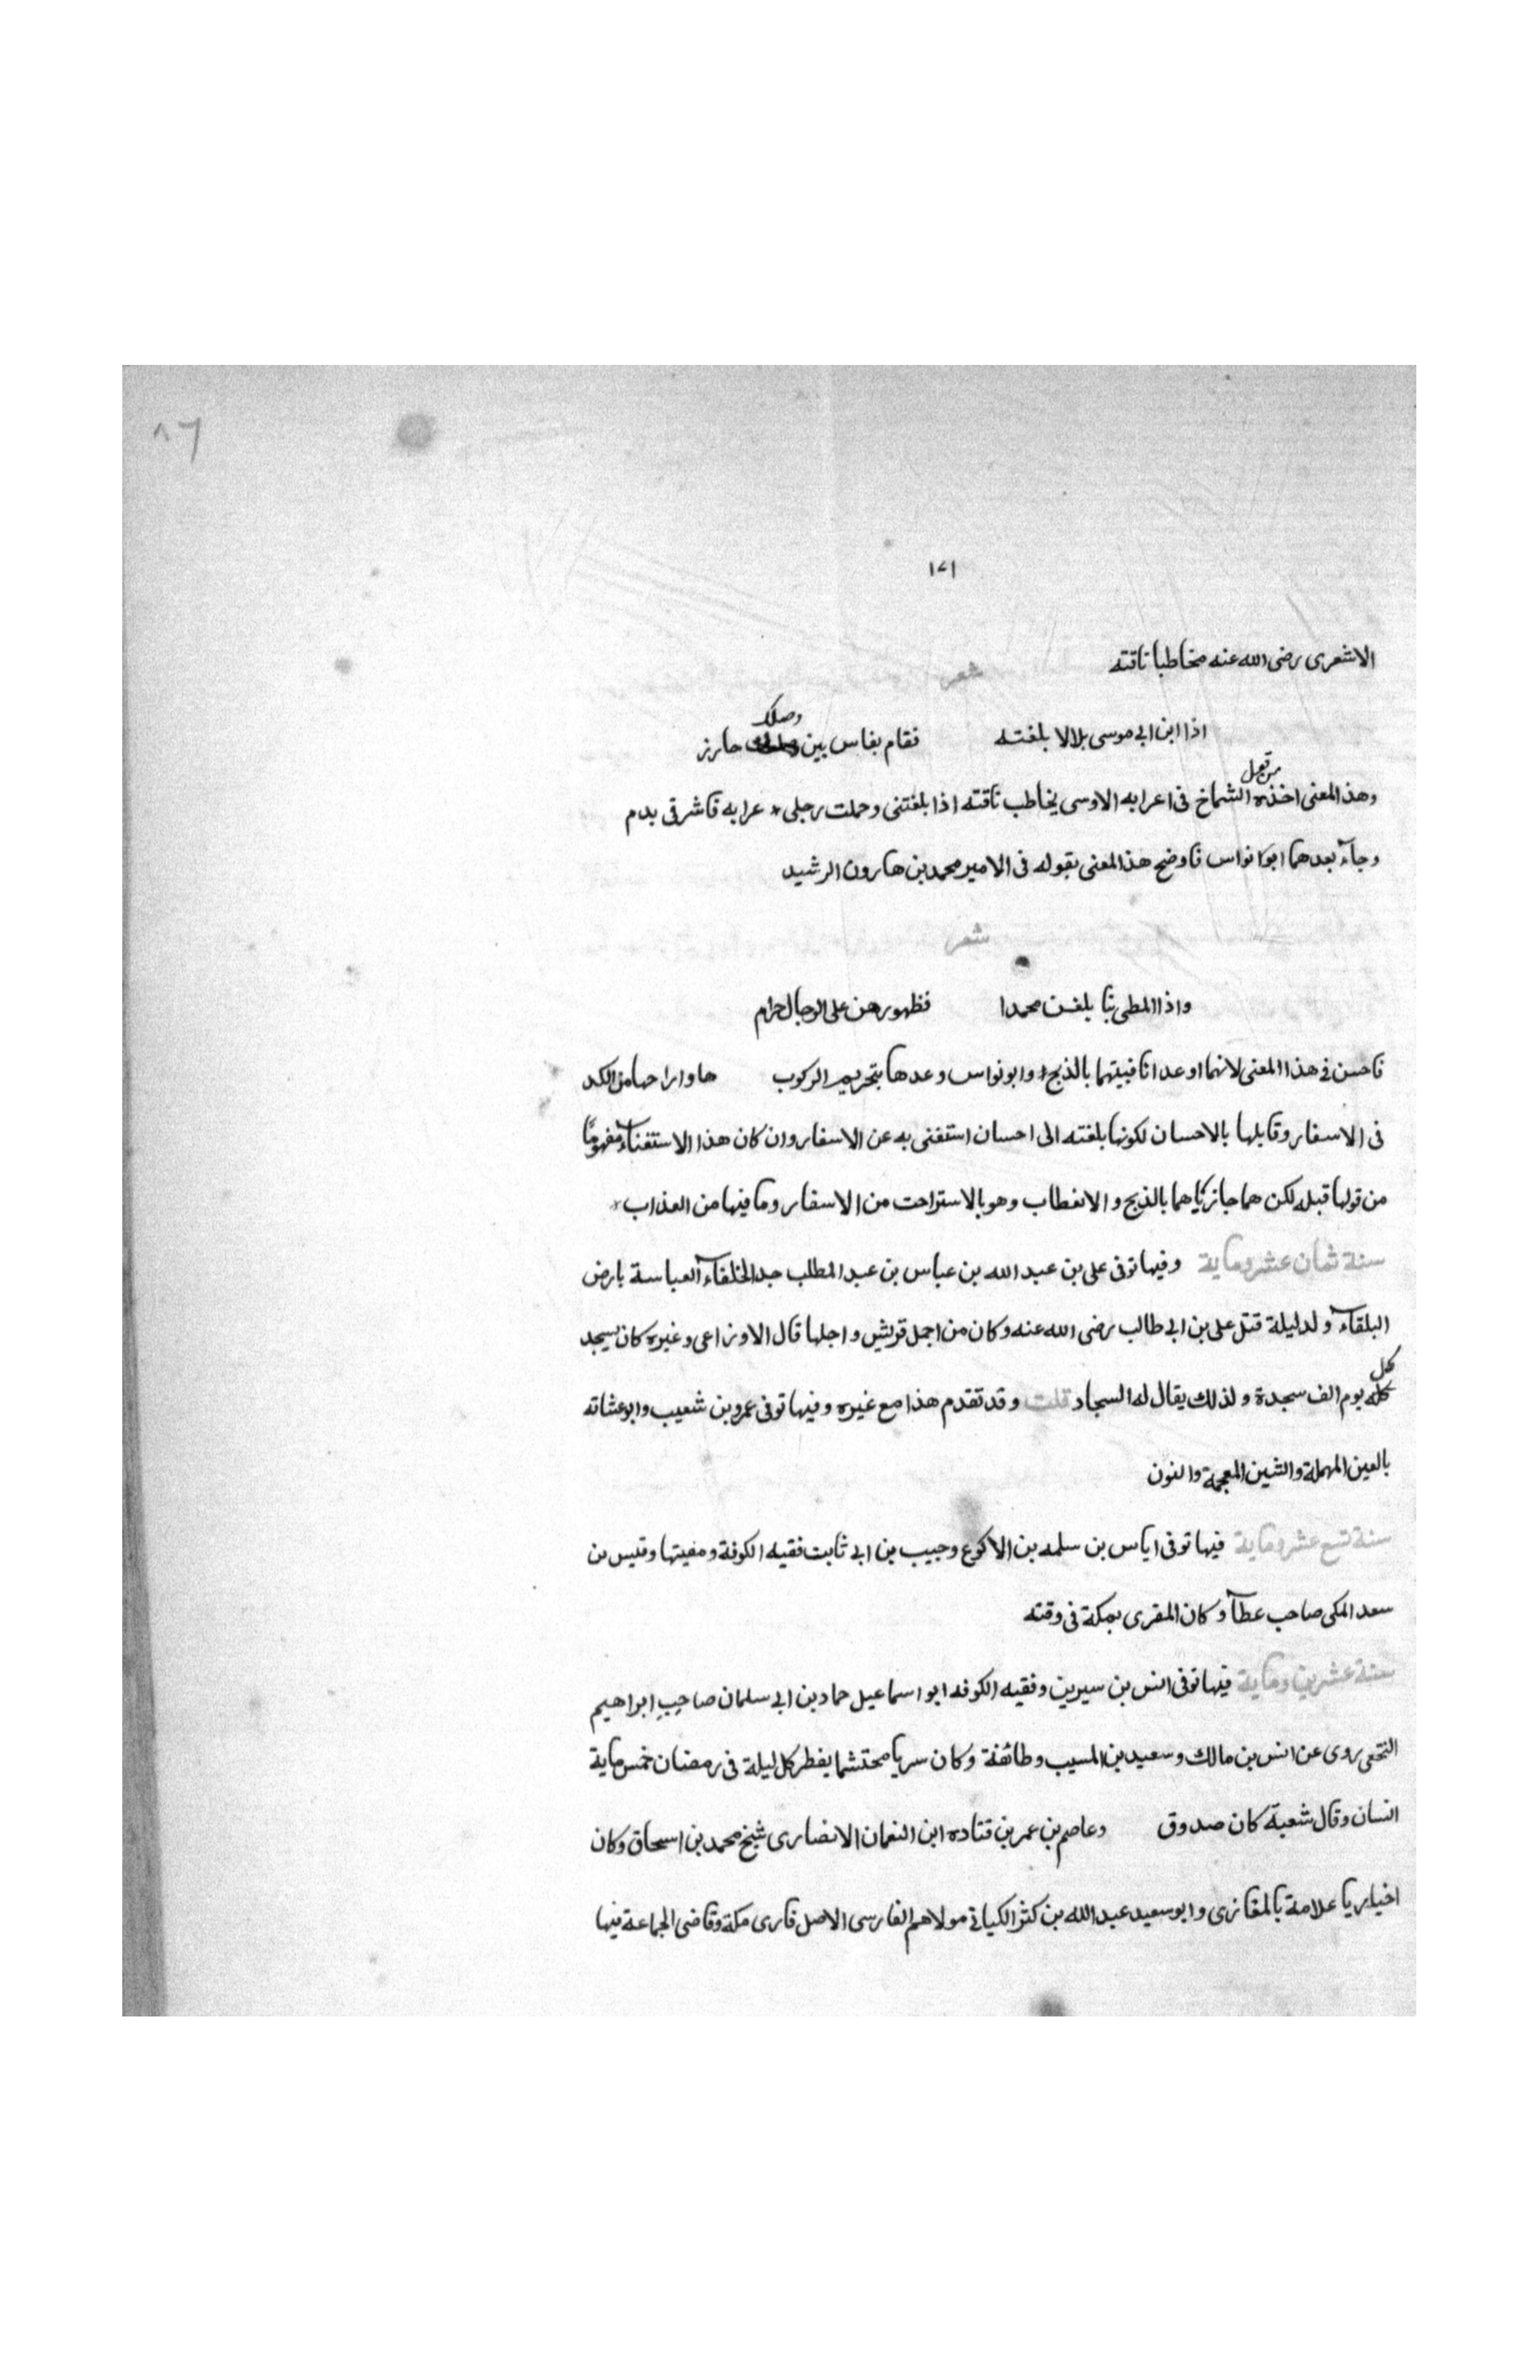 ٨٦
١٧١
الاشعرى رضى الله عنه مخاطبا ناقته
شعر
اذا ابن ابى موسى بلالا بلغته فقام بفاس بين وصلك حارز
وهذ المعنى اخذه من قول الشماخ فى اعرابه الاوسى يخاطب ناقته اذا بلغتنى وحملت رحلى * عرابه فاشرقى بدم
وجاء بعدهما ابوا نواس فاوضح هذ المعنى بقوله فى الامير محمد بن هارون الرشيد
شعر
واذا المطى بنا بلغن محمدا فظهورهن على الرجال حرام
فاحسن فى هذا المعنى لانهما اوعدا ناقيتهما بالذبح وابونواس وعدها بتحريم الركوب ها واراحها من الكد
فى الاسفار وقابلها بالاحسان لكونها بلغته الى احسان استغنى به عن الاسفار وان كان هذا الاستغناء مفهومًا
من قولها قبله لكن هما جازياهما بالذبح والانعطاب وهو بالاستراحت من الاسفار وما فيها من العذاب *
سنة ثمان عشر وماية وفيها توفى على بن عبد الله بن عباس بن عبد المطلب جد الخلفاء العباسة بارض
البلقاء ولد ليلة قتل على بن ابى طالب رضى الله عنه وكان من اجمل قريش واجلها قال الاوزاعى وغيره كان يسجد
كل يوم الف سجدة ولذلك يقال له السجاد قلت وقد تقدم هذا مع غيره وفيها توفى عمرو بن شعيب وابو عشانه
بالعين المهملة والشين المعجمة والنون
سنة تسع عشر وماية فيها توفى اياس بن سلمه بن الاكوع وحبيب بن ابى ثابت فقيه الكوفة ومفيتها وقيس بن
سعد المكى صاحب عطاء وكان المقرى بمكة فى وقته
سنة عشرين وماية فيها توفى انس بن سيرين وفقيه الكوفه ابو اسماعيل حماد بن ابى سلمان صاحِبِ ابراهيم
النخعى روى عن انس بن مالك وسعيد بن المسيب وطائفة وكان سريا محتشما يفطر كل ليلة فى رمضان خمس ماية
انسان وقال شعبة كان صدوق وعاصم بن عمر بن قتاده ابن النعمان الانصارى شيخ محمد بن اسحاق وكان
اخياريا علامة بالمغازى وابو سعيد عبد الله بن كثر الكيانى مولاهم الفارسى الاصل قارى مكة وقاضى الجماعة فيها